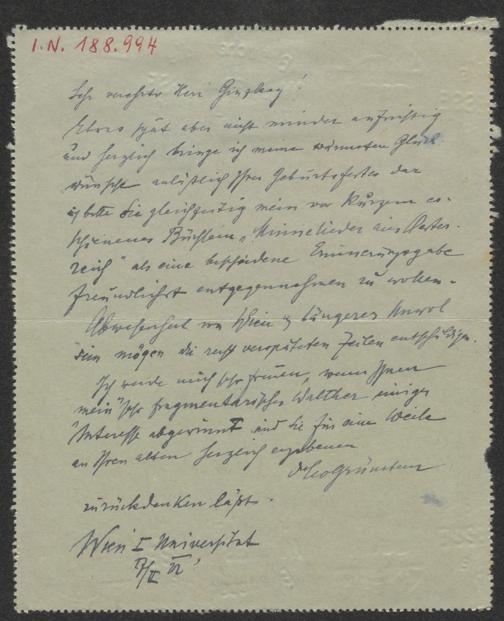 I.N. 188.994
Sehr verehrter Herr Ginzkey!
Etwas spät aber nicht minder aufrichtig
und herzlich bringe ich meine wärmsten Glück
wünsche anläßlich Ihres Geburtsfestes dar
ich bitte Sie gleichzeitig mein vor Kurzem er-
schienenes Büchlein „Minnelieder aus Oester-
reich" als eine bescheidene Erinnerungsgabe
freundlichst entgegennehmen zu wollen.
Abwesenheit von Wien & längeres Unwol
sein mögen die recht verspäteten Zeilen entschuldigen.
Ich werde mich sehr freuen, wenn Ihnen
mein sehr fragmentarischer Walther einiges
Interesse abgewinnt und Sie für eine Weile
an Ihren alten herzlich ergebenen
zurückdenken läßt.
Wien I Universität